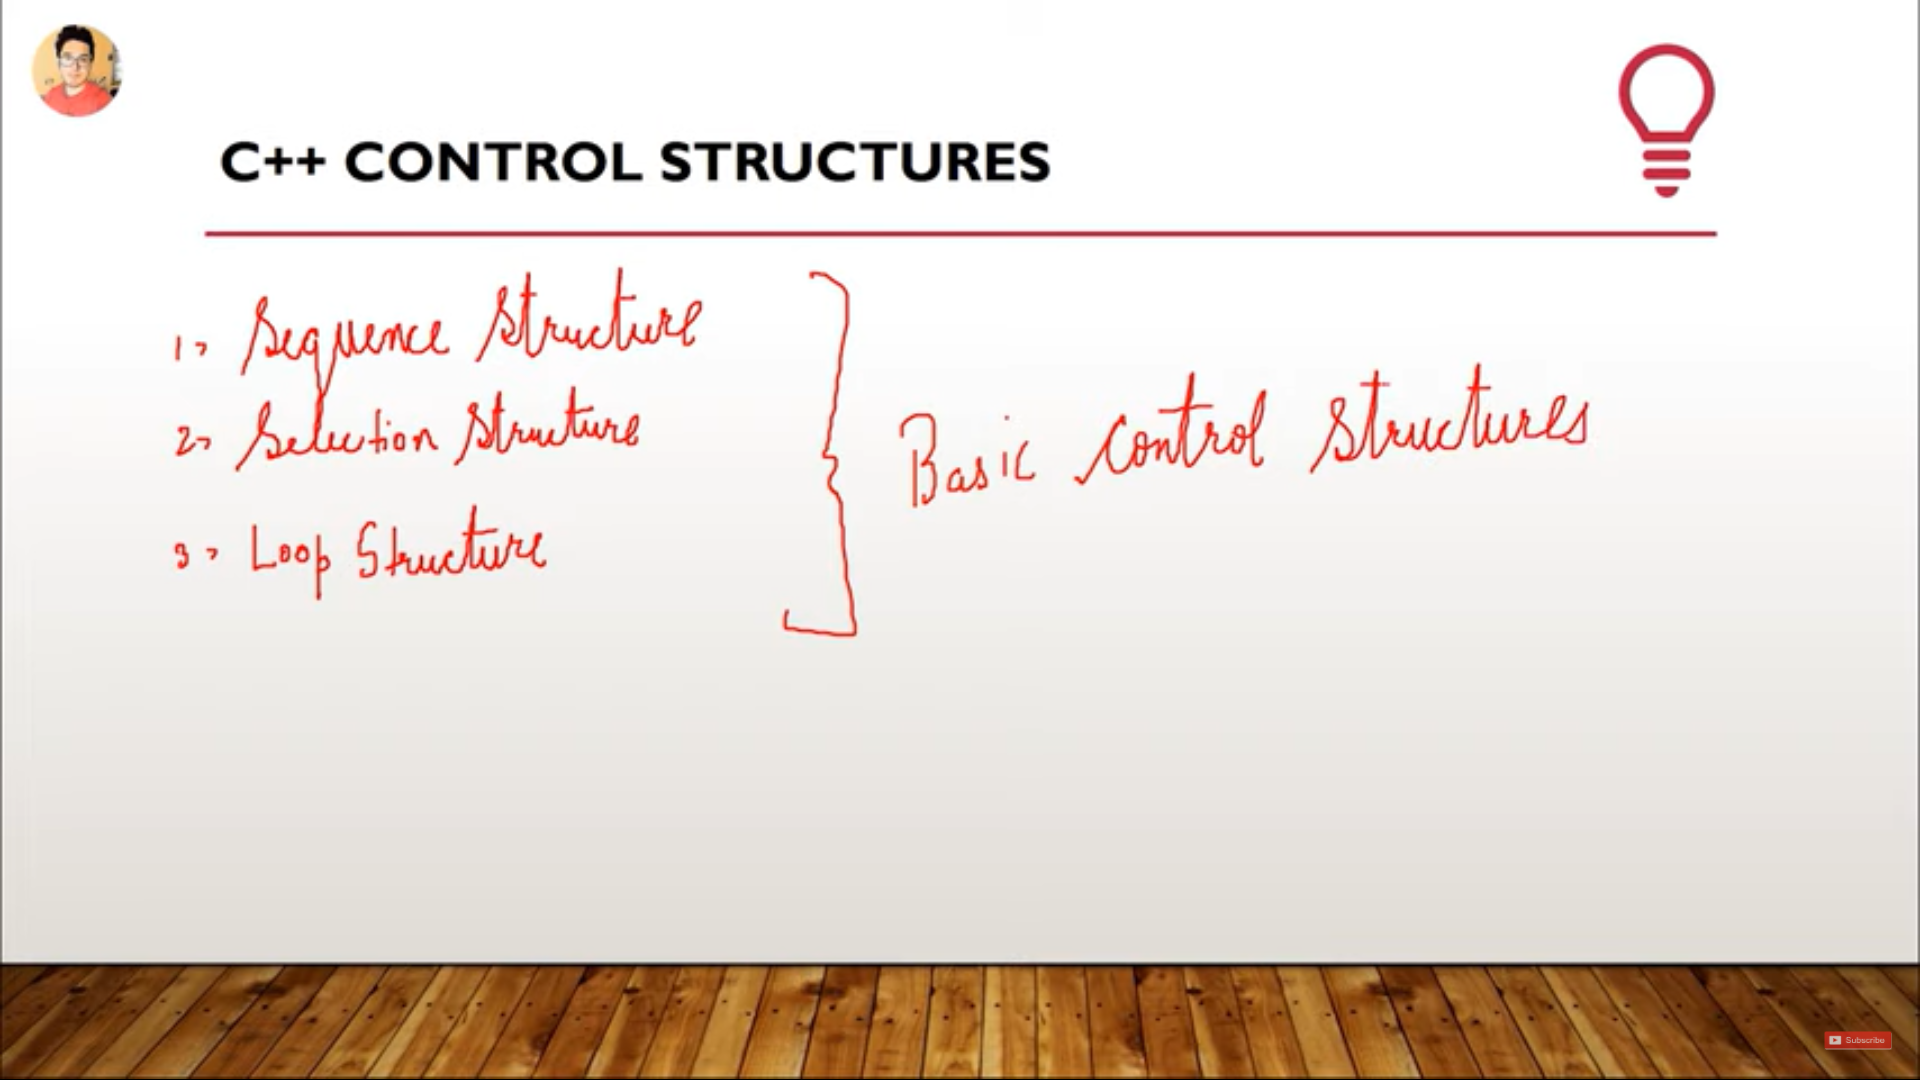 C++ CONTROL STRUCTURES
1, Sequence Structure
2, Selection Structure
3, Loop Structure
Basic Control Structures
Subscribe